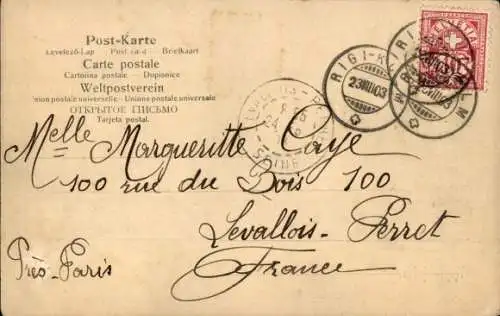 Post-Karte
Levelező-Lap Postkarta Briefkaart
Carte postale
Cartolina postale — Dopisnice
Weltpostverein
Union postale universelle — Unione postale universale
ОТКРЫТОЕ ПИСЬМО
Tarjeta postal.
HELVETIA
RIGI-K
23 VIII 03
RIGI
LM
23 VIII 03
SEINE
Melle Margueritte Caye
100 rue du Bois 100
Levallois-Perret
Près-Paris
France